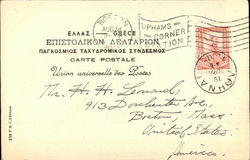 BOSTON
UPHAMS
CORNER
STATION
ΕΛΛΑΣ GRÈCE
ΕΠΙΣΤΟΛΙΚΟΝ ΔΕΛΤΑΡΙΟΝ
ΠΑΓΚΟΣΜΙΟΣ ΤΑΧΥΔΡΟΜΙΚΟΣ ΣΥΝΔΕΣΜΟΣ
CARTE POSTALE
Union universelle des Postes
Mr. H. H. Leonard,
913 Dorchester Ave,
Boston, Mass.
United States.
America.